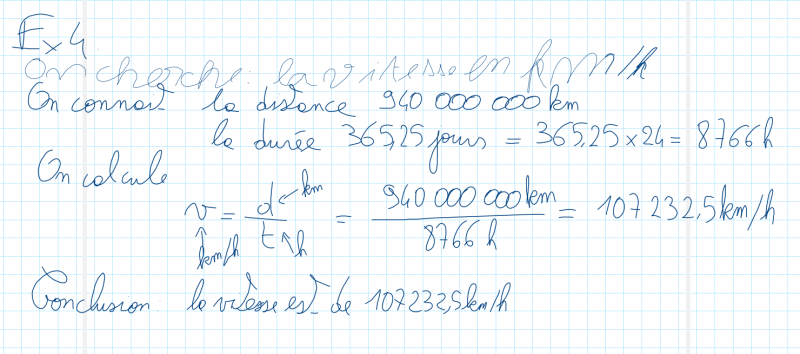 Ex 4
On cherche : la vitesse en km/h
On connaît la distance 940 000 000 km
la durée 365,25 jours = 365,25 x 24 = 8766 h
On calcule
v = d/t = 940 000 000 km / 8766 h = 107 232,5 km/h
km
km/h h
Conclusion : la vitesse est de 107 232,5 km/h